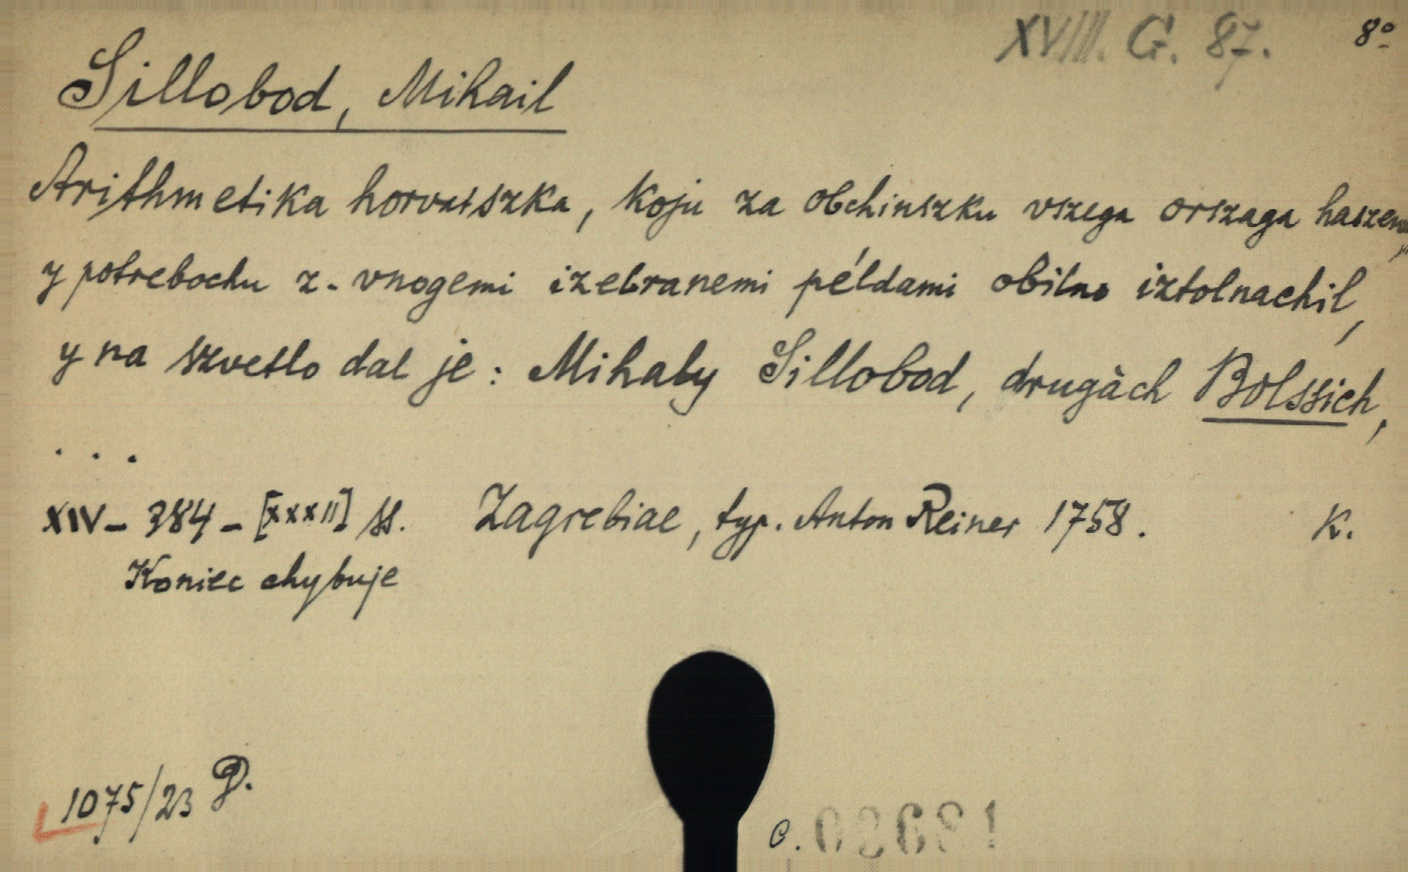 XVIII. G. 87. 8º
Sillobod, Mihail
Arithmetika horvatszka, koju za obchinszku vszega orszaga haszen,
y potrebochu z. vnogemi izebranemi példami obilno iztolnachil,
y na szvetlo dal je: Mihaly Sillobod, drugàch Bolssich,
...
XIV- 384 - [XXXII] ss. Zagrebiae, typ. Anton Reiner 1758. K.
Koniec chybuje
1075/23 D.
C.